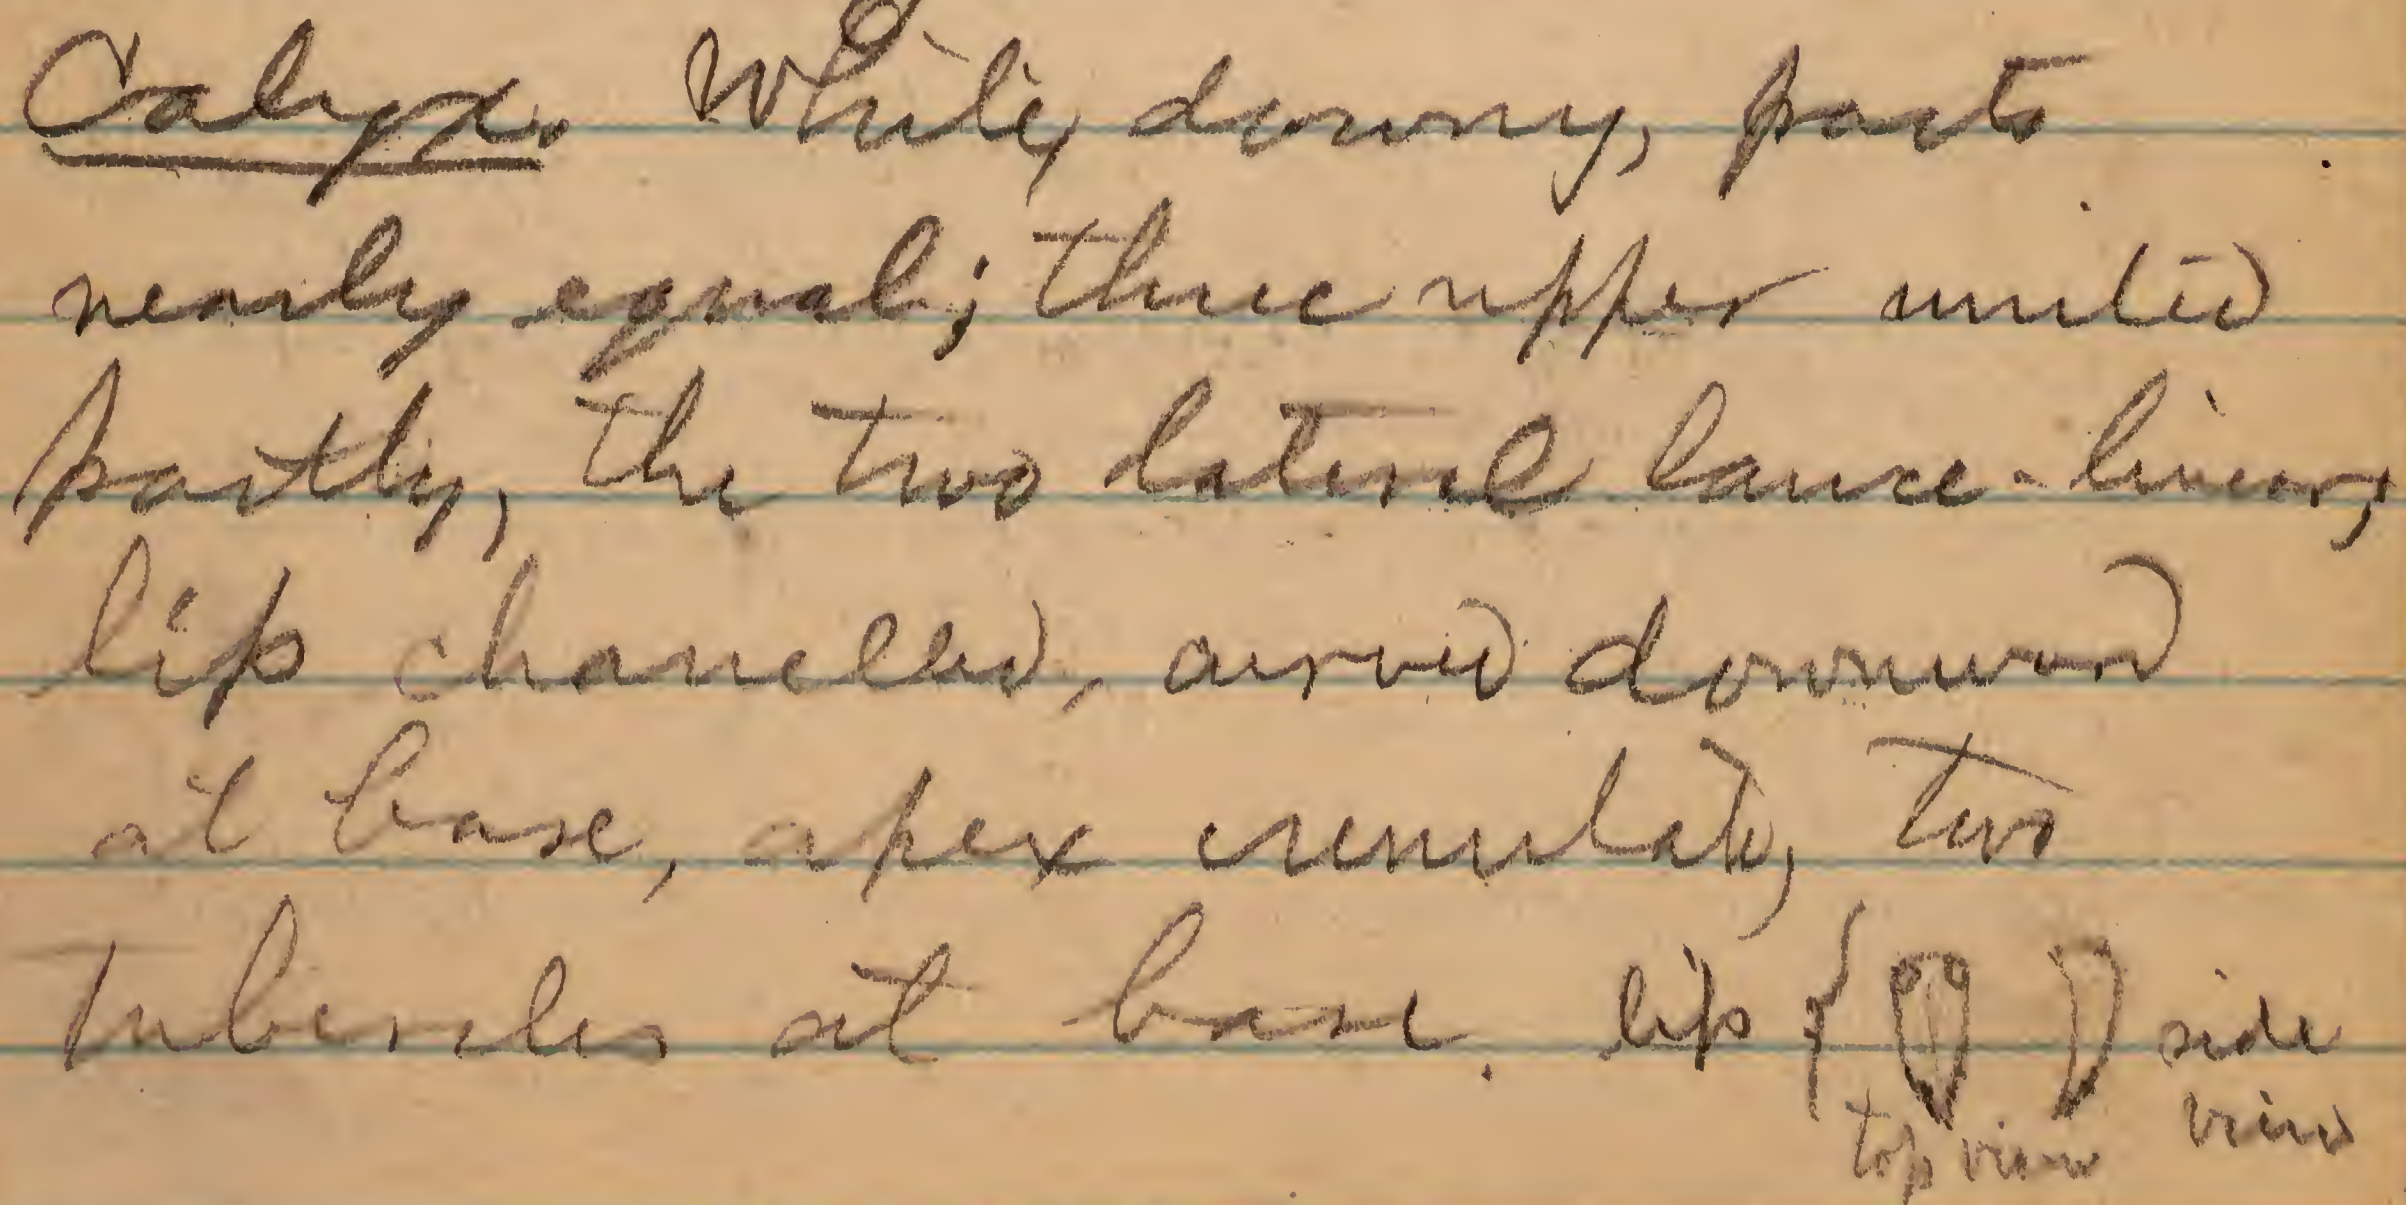 Calyx. White, downy, parts
nearly equal; three upper united
partly, the two lateral lance-linear,
lip chanelled, curved downward
at base, apex crenulate, two
tubercles at base. lip { side
top view view